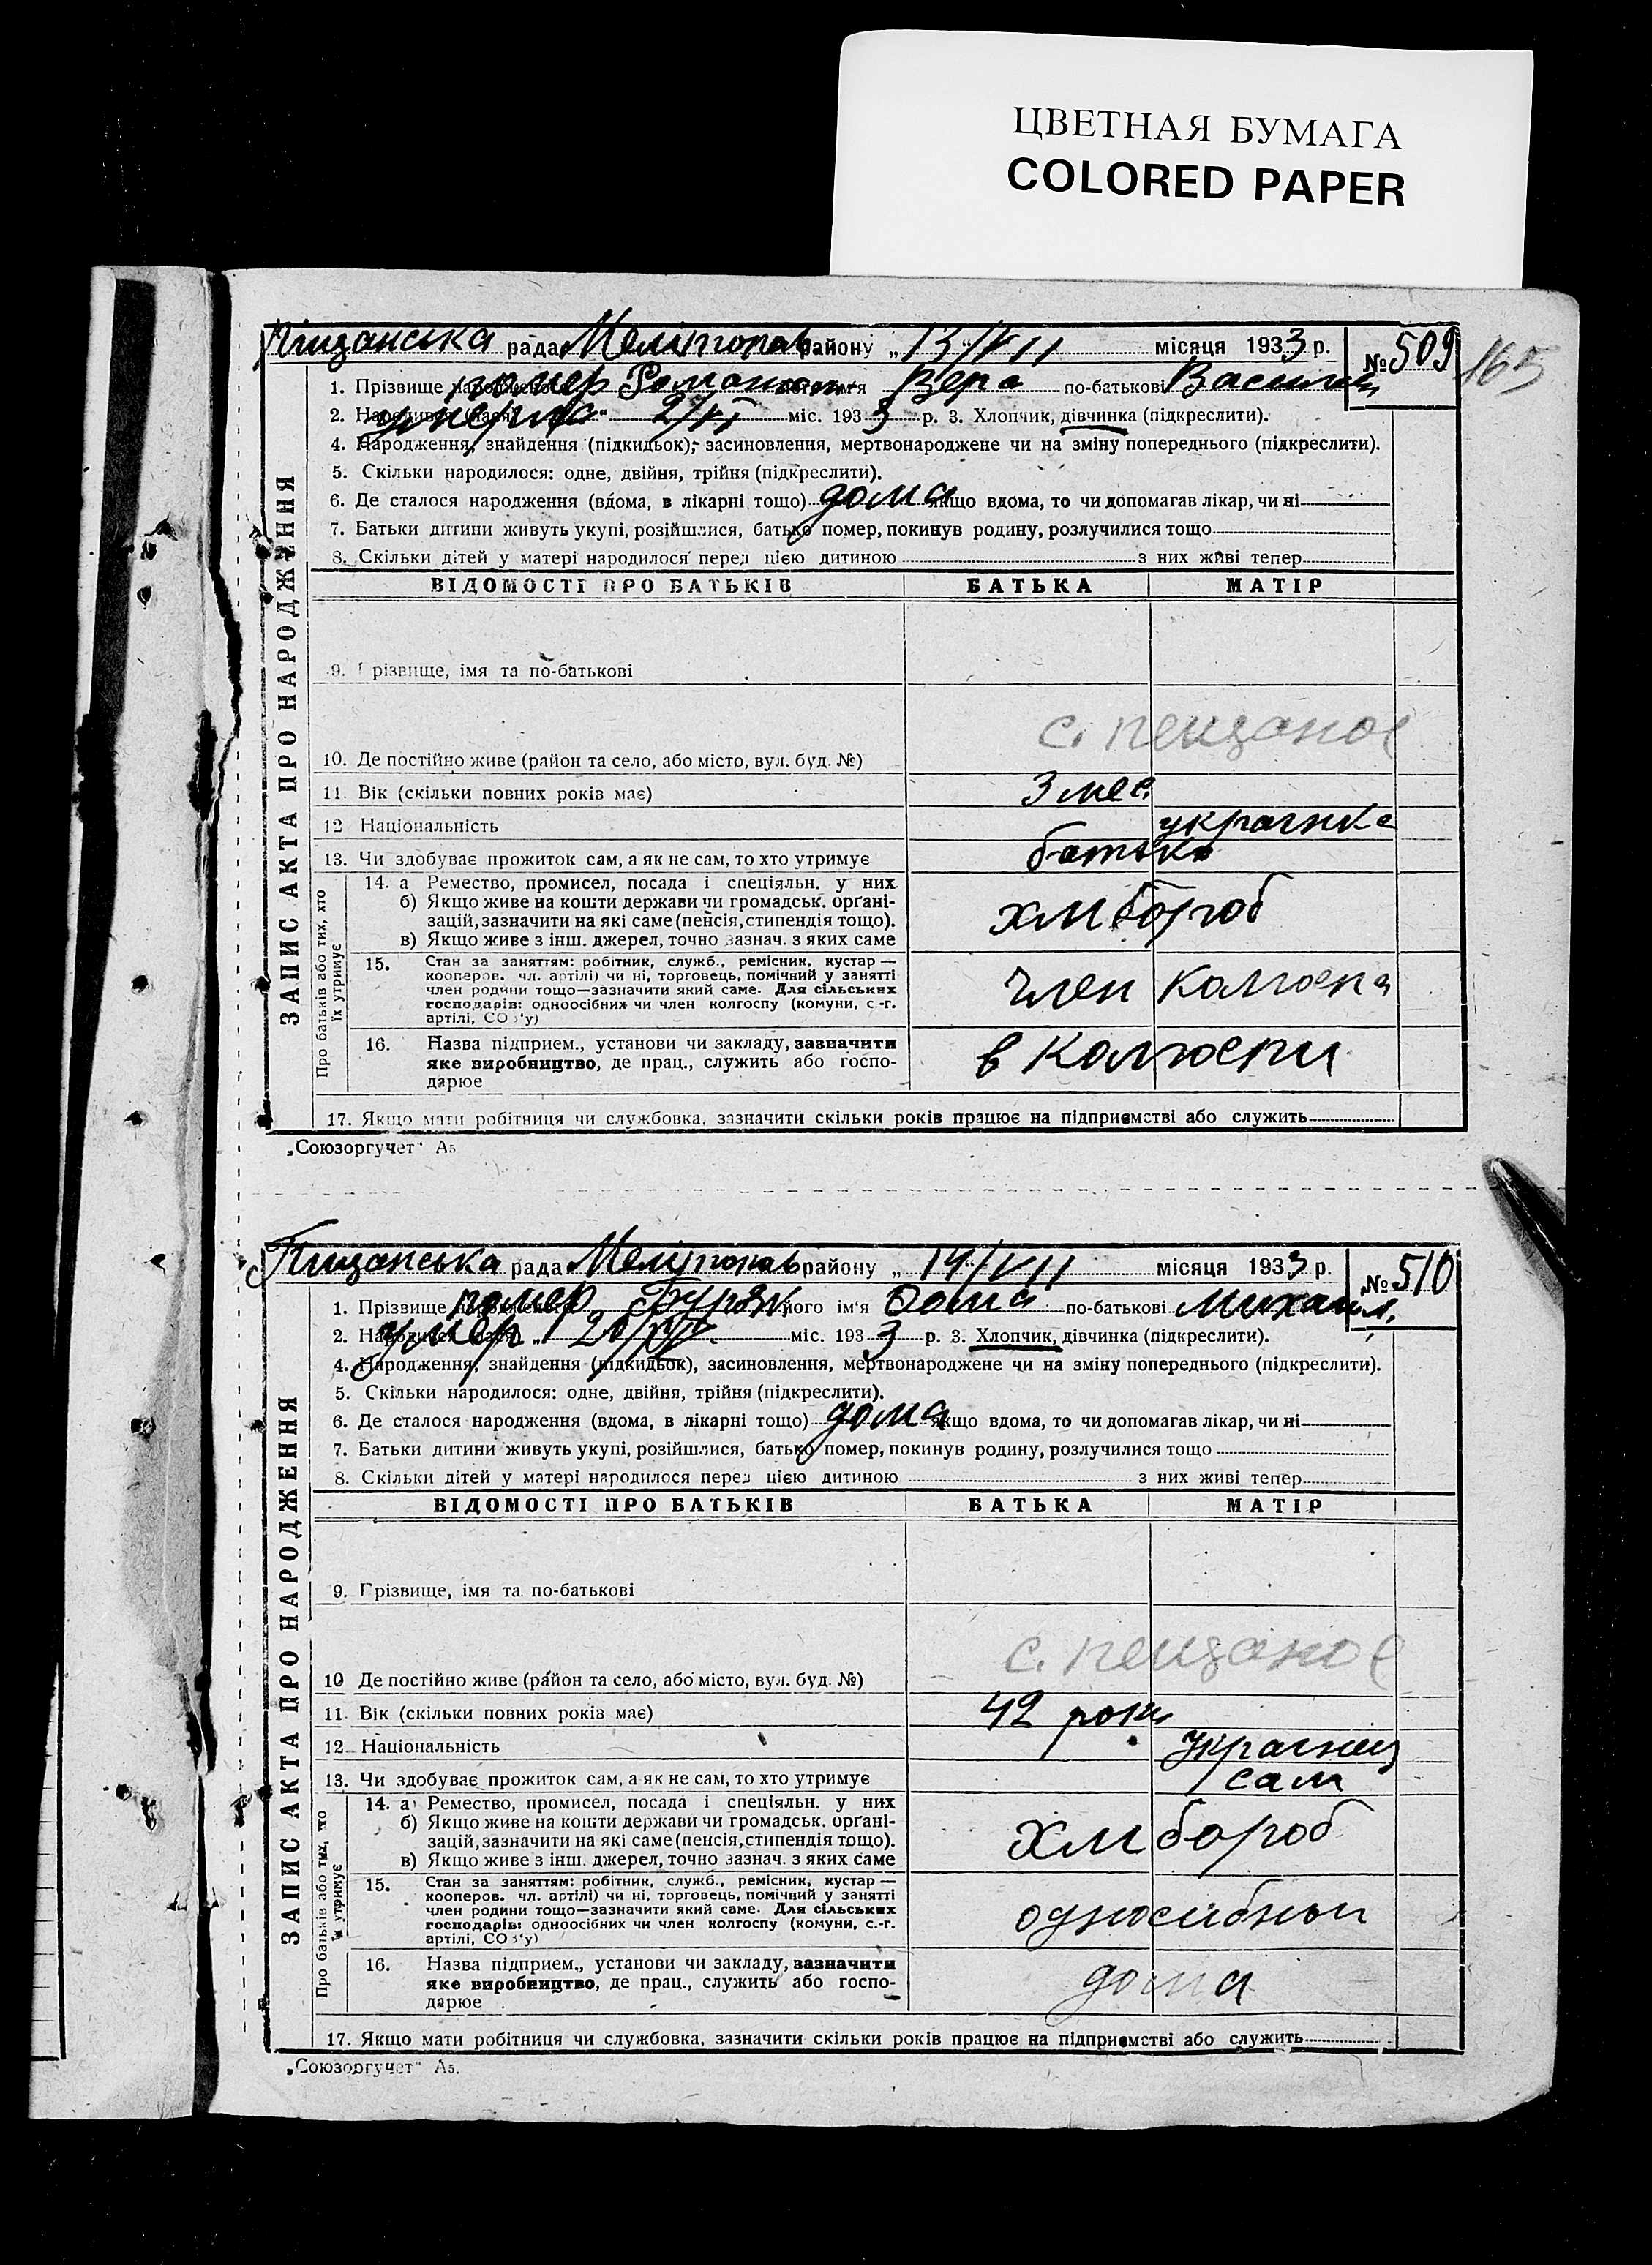 ЦВЕТНАЯ БУМАГА
COLORED PAPER
Піщанська рада Меліtопав. району „13/VII місяця 1933 р. №509
165
1. Прізвище помер імя Вера по-батькові Василь
2. умерла „ 2/VI міс. 1933 р. 3. Хлопчик, дівчинка (підкреслити).
4. Народження, знайдення (підкидьок), засиновлення, мертвонароджене чи на зміну попереднього (підкреслити).
5. Скільки народилося: одне, двійня, трійня (підкреслити).
6. Де сталося народження (вдома, в лікарні тощо) дома якщо вдома, то чи допомагав лікар, чи ні
7. Батьки дитини живуть укупі, розійшлися, батько помер, покинув родину, розлучилися тощо
8. Скільки дітей у матері народилося перед цією дитиною з них живі тепер
ЗАПИС АКТА ПРО НАРОДЖЕННЯ
ВІДОМОСТІ ПРО БАТЬКІВ БАТЬКА МАТІР
9. Прізвище, імя та по-батькові
с. пещаное
10. Де постійно живе (район та село, або місто, вул. буд. №)
11. Вік (скільки повних років має) 3 мес.
12 Національність украінка
13. Чи здобуває прожиток сам, а як не сам, то хто утримує батько
Про батьків або тих, хто їх утримує
14. а Ремество, промисел, посада і спеціяльн. у них
б) Якщо живе на кошти держави чи громадськ. орґані-
зацій, зазначити на які саме (пенсія, стипендія тощо).
в) Якщо живе з інш. джерел, точно зазнач. з яких саме
хлибороб
15. Стан за заняттям: робітник, служб., ремісник, кустар —
кооперов. чл. артілі) чи ні, торговець, помічний у занятті
член родини тощо—зазначити який саме. Для сільських
господарів: одноосібник чи член колгоспу (комуни, с.-г.
артілі, СОз'у)
член колгоспа
16. Назва підприєм., установи чи закладу, зазначити
яке виробництво, де прац., служить або госпо-
дарює
в колгоспи
17. Якщо мати робітниця чи службовка, зазначити скільки років працює на підприємстві або служить
„Союзоргучет“ А5
Піщанська рада Меліtопав району „14/VII місяця 1933 р. №510
1. Прізвище помер Буряк його ім'я Фома по-батькові Михаил.
2. умер „ міс. 1933 р. 3. Хлопчик, дівчинка (підкреслити).
4. Народження, знайдення (підкидьок), засиновлення, мертвонароджене чи на зміну попереднього (підкреслити).
5. Скільки народилося: одне, двійня, трійня (підкреслити).
6. Де сталося народження (вдома, в лікарні тощо) дома якщо вдома, то чи допомагав лікар, чи ні
7. Батьки дитини живуть укупі, розійшлися, батько помер, покинув родину, розлучилися тощо
8. Скільки дітей у матері народилося перед цією дитиною з них живі тепер
ЗАПИС АКТА ПРО НАРОДЖЕННЯ
ВІДОМОСТІ ПРО БАТЬКІВ БАТЬКА МАТІР
9. Прізвище, імя та по-батькові
с. пещаное
10 Де постійно живе (район та село, або місто, вул. буд. №)
11. Вік (скільки повних років має) 42 роки
12. Національність Украінец
13. Чи здобуває прожиток сам, а як не сам, то хто утримує сам
Про батьків або тих, хто їх утримує
14. а) Ремество, промисел, посада і спеціяльн. у них
б) Якщо живе на кошти держави чи громадськ. орґані-
зацій, зазначити на які саме (пенсія, стипендія тощо).
в) Якщо живе з інш. джерел, точно зазнач. з яких саме
хлибороб
15. Стан за заняттям: робітник, служб., ремісник, кустар —
кооперов. чл. артілі) чи ні, торговець, помічний у занятті
член родини тощо—зазначити який саме. Для сільських
господарів: одноосібних чи член колгоспу (комуни, с.-г.
артілі, СОз'у)
односибный
16. Назва підприєм., установи чи закладу, зазначити
яке виробництво, де прац., служить або госпо-
дарює
дома
17. Якщо мати робітниця чи службовка, зазначити скільки років працює на підприємстві або служить
„Союзоргучет“ А5.